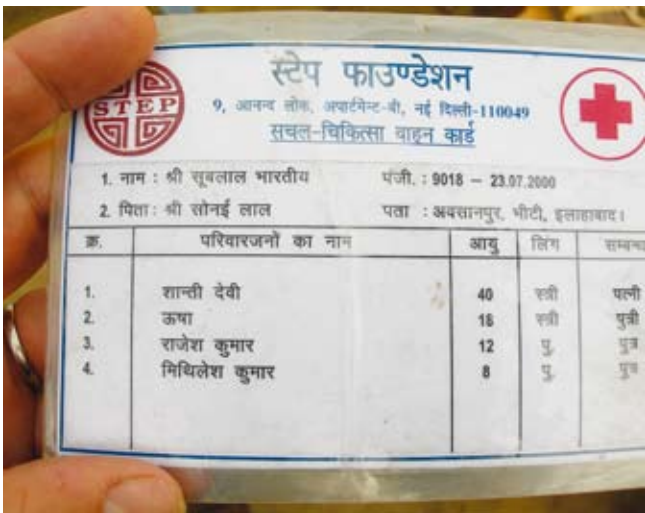 STEP
स्टेप फाउण्डेशन
9, आनन्द लोक, अपार्टमेन्ट-बी, नई दिल्ली-110049
सचल-चिकित्सा वाहन कार्ड
1. नाम : श्री सूबलाल भारतीय पंजी. : 9018 – 23.07.2000
2. पिता : श्री सोनई लाल पता : अवसानपुर, भीटी, इलाहाबाद।
क्र. परिवारजनों का नाम आयु लिंग
1. शान्ती देवी 40 स्त्री पत्नी
2. ऊषा 18 स्त्री पुत्री
3. राजेश कुमार 12 पु. पुत्र
4. मिथिलेश कुमार 8 पु. पुत्र